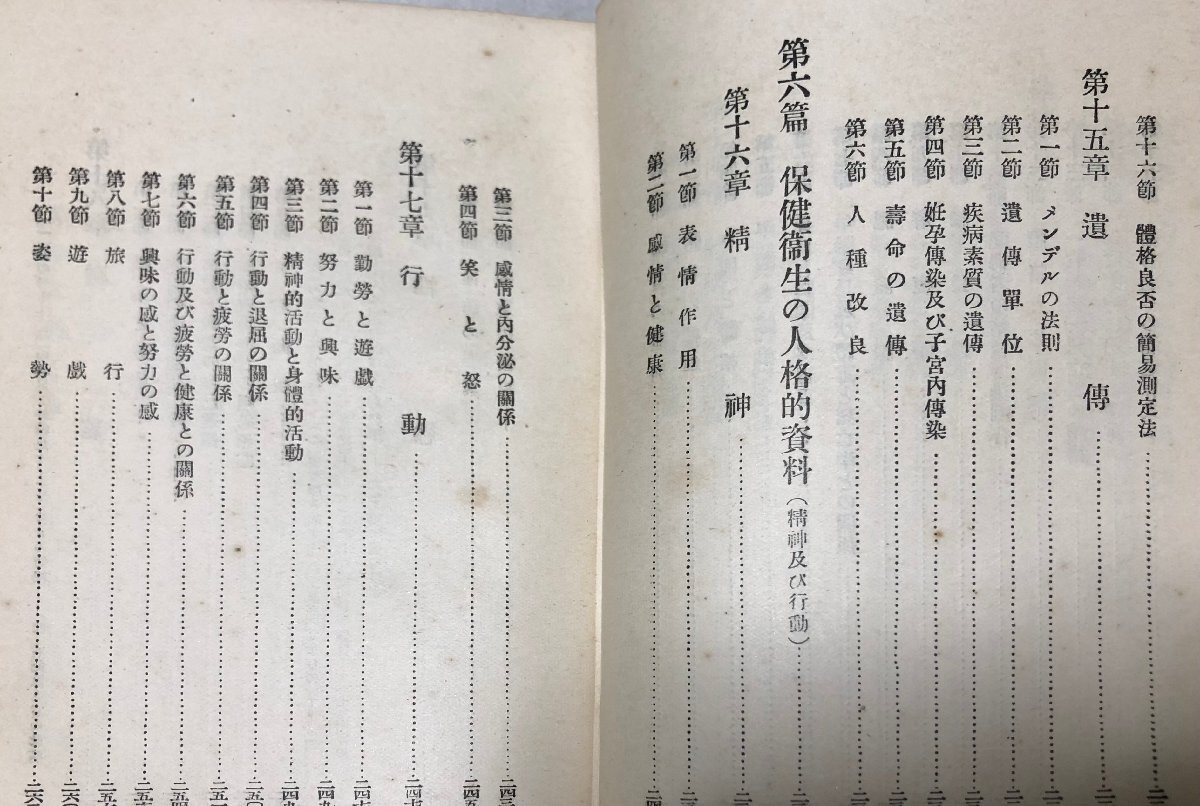 第十六節 體格良否の簡易測定法
第十五章 遺傳
第一節 メンデルの法則
第二節 遺傳單位
第三節 疾病素質の遺傳
第四節 妊孕傳染及び子宮內傳染
第五節 壽命の遺傳
第六節 人種改良
第六篇 保健衞生の人格的資料(精神及び行動)
第十六章 精神
第一節 表情作用
第二節 感情と健康
第三節 感情と內分泌の關係
第四節 笑と怒
第十七章 行動
第一節 勤勞と遊戲
第二節 努力と興味
第三節 精神的活動と身體的活動
第四節 行動と退屈の關係
第五節 行動と疲勞の關係
第六節 行動及び疲勞と健康との關係
第七節 興味の感と努力の感
第八節 旅行
第九節 遊戲
第十節 姿勢